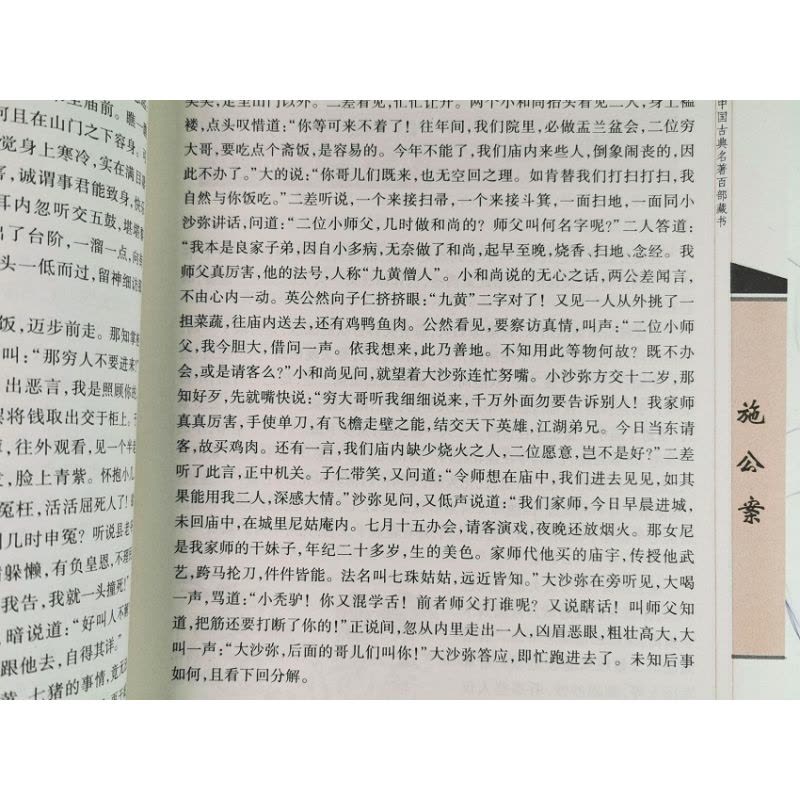 至庙前。瞧一
何且在山门之下容身。可
觉身上寒冷，实在满目
客，诚谓事君能致身，快
耳内忽听交五鼓，堪堪
出了台阶，一溜一点，向
头一低而过，留神细
饭，迈步前走。那知掌
叫：“那穷人不要进来
出恶言，我是照顾你的
将钱取出交于柜上。于
，往外观看，见一个半
发，脸上青紫。怀抱小儿
冤枉，活活屈死人了！
几时申冤？听说县老
躲懒，有负皇恩，不理
我告，我就一头撞死！”
暗说道：“好叫人不解
跟他去，自得其详。”
黄、七猪的事情，竟无
笑笑，走至山门以外。二差看见，忙忙让开。两个小和尚抬头看见二人，身上褴
褛，点头叹惜道：“你等可来不着了！往年间，我们院里，必做盂兰盆会，二位穷
大哥，要吃点个斋饭，是容易的。今年不能了，我们庙内来些人，倒象闹丧的，因
此不办了。”大的说：“你哥儿们既来，也无空回之理。如肯替我们打扫打扫，我
自然与你饭吃。”二差听说，一个来接扫帚，一个来接斗箕，一面扫地，一面同小
沙弥讲话，问道：“二位小师父，几时做和尚的？师父叫何名字呢？”二人答道：
“我本是良家子弟，因自小多病，无奈做了和尚，起早至晚，烧香、扫地、念经。我
师父真厉害，他的法号，人称“九黄僧人”。小和尚说的无心之话，两公差闻言，
不由心内一动。英公然向子仁挤挤眼：“九黄”二字对了！又见一人从外挑了一
担菜蔬，往庙内送去，还有鸡鸭鱼肉。公然看见，要察访真情，叫声：“二位小师
父，我今胆大，借问一声。依我想来，此乃善地。不知用此等物何故？既不办
会，或是请客么？”小和尚见问，就望着大沙弥连忙努嘴。小沙弥方交十二岁，那
知好歹，先就嘴快说：“穷大哥听我细细说来，千万外面勿要告诉别人！我家师
真真厉害，手使单刀，有飞檐走壁之能，结交天下英雄，江湖弟兄。今日当东请
客，故买鸡肉。还有一言，我们庙内缺少烧火之人，二位愿意，岂不是好？”二差
听了此言，正中机关。子仁带笑，又问道：“令师想在庙中，我们进去见见，如其
果能用我二人，深感大情。”沙弥见问，又低声说道：“我们家师，今日早晨进城，
未回庙中，在城里尼姑庵内。七月十五办会，请客演戏，夜晚还放烟火。那女尼
是我家师的干妹子，年纪二十多岁，生的美色。家师代他买的庙宇，传授他武
艺，跨马抡刀，件件皆能。法名叫七珠姑姑，远近皆知。”大沙弥在旁听见，大喝
一声，骂道：“小秃驴！你又混学舌！前者师父打谁呢？又说瞎话！叫师父知
道，把筋还要打断了你的！”正说间，忽从内里走出一人，凶眉恶眼，粗壮高大，大
叫一声：“大沙弥，后面的哥儿们叫你！”大沙弥答应，即忙跑进去了。未知后事
如何，且看下回分解。
中国古典名著百部藏书
施公案